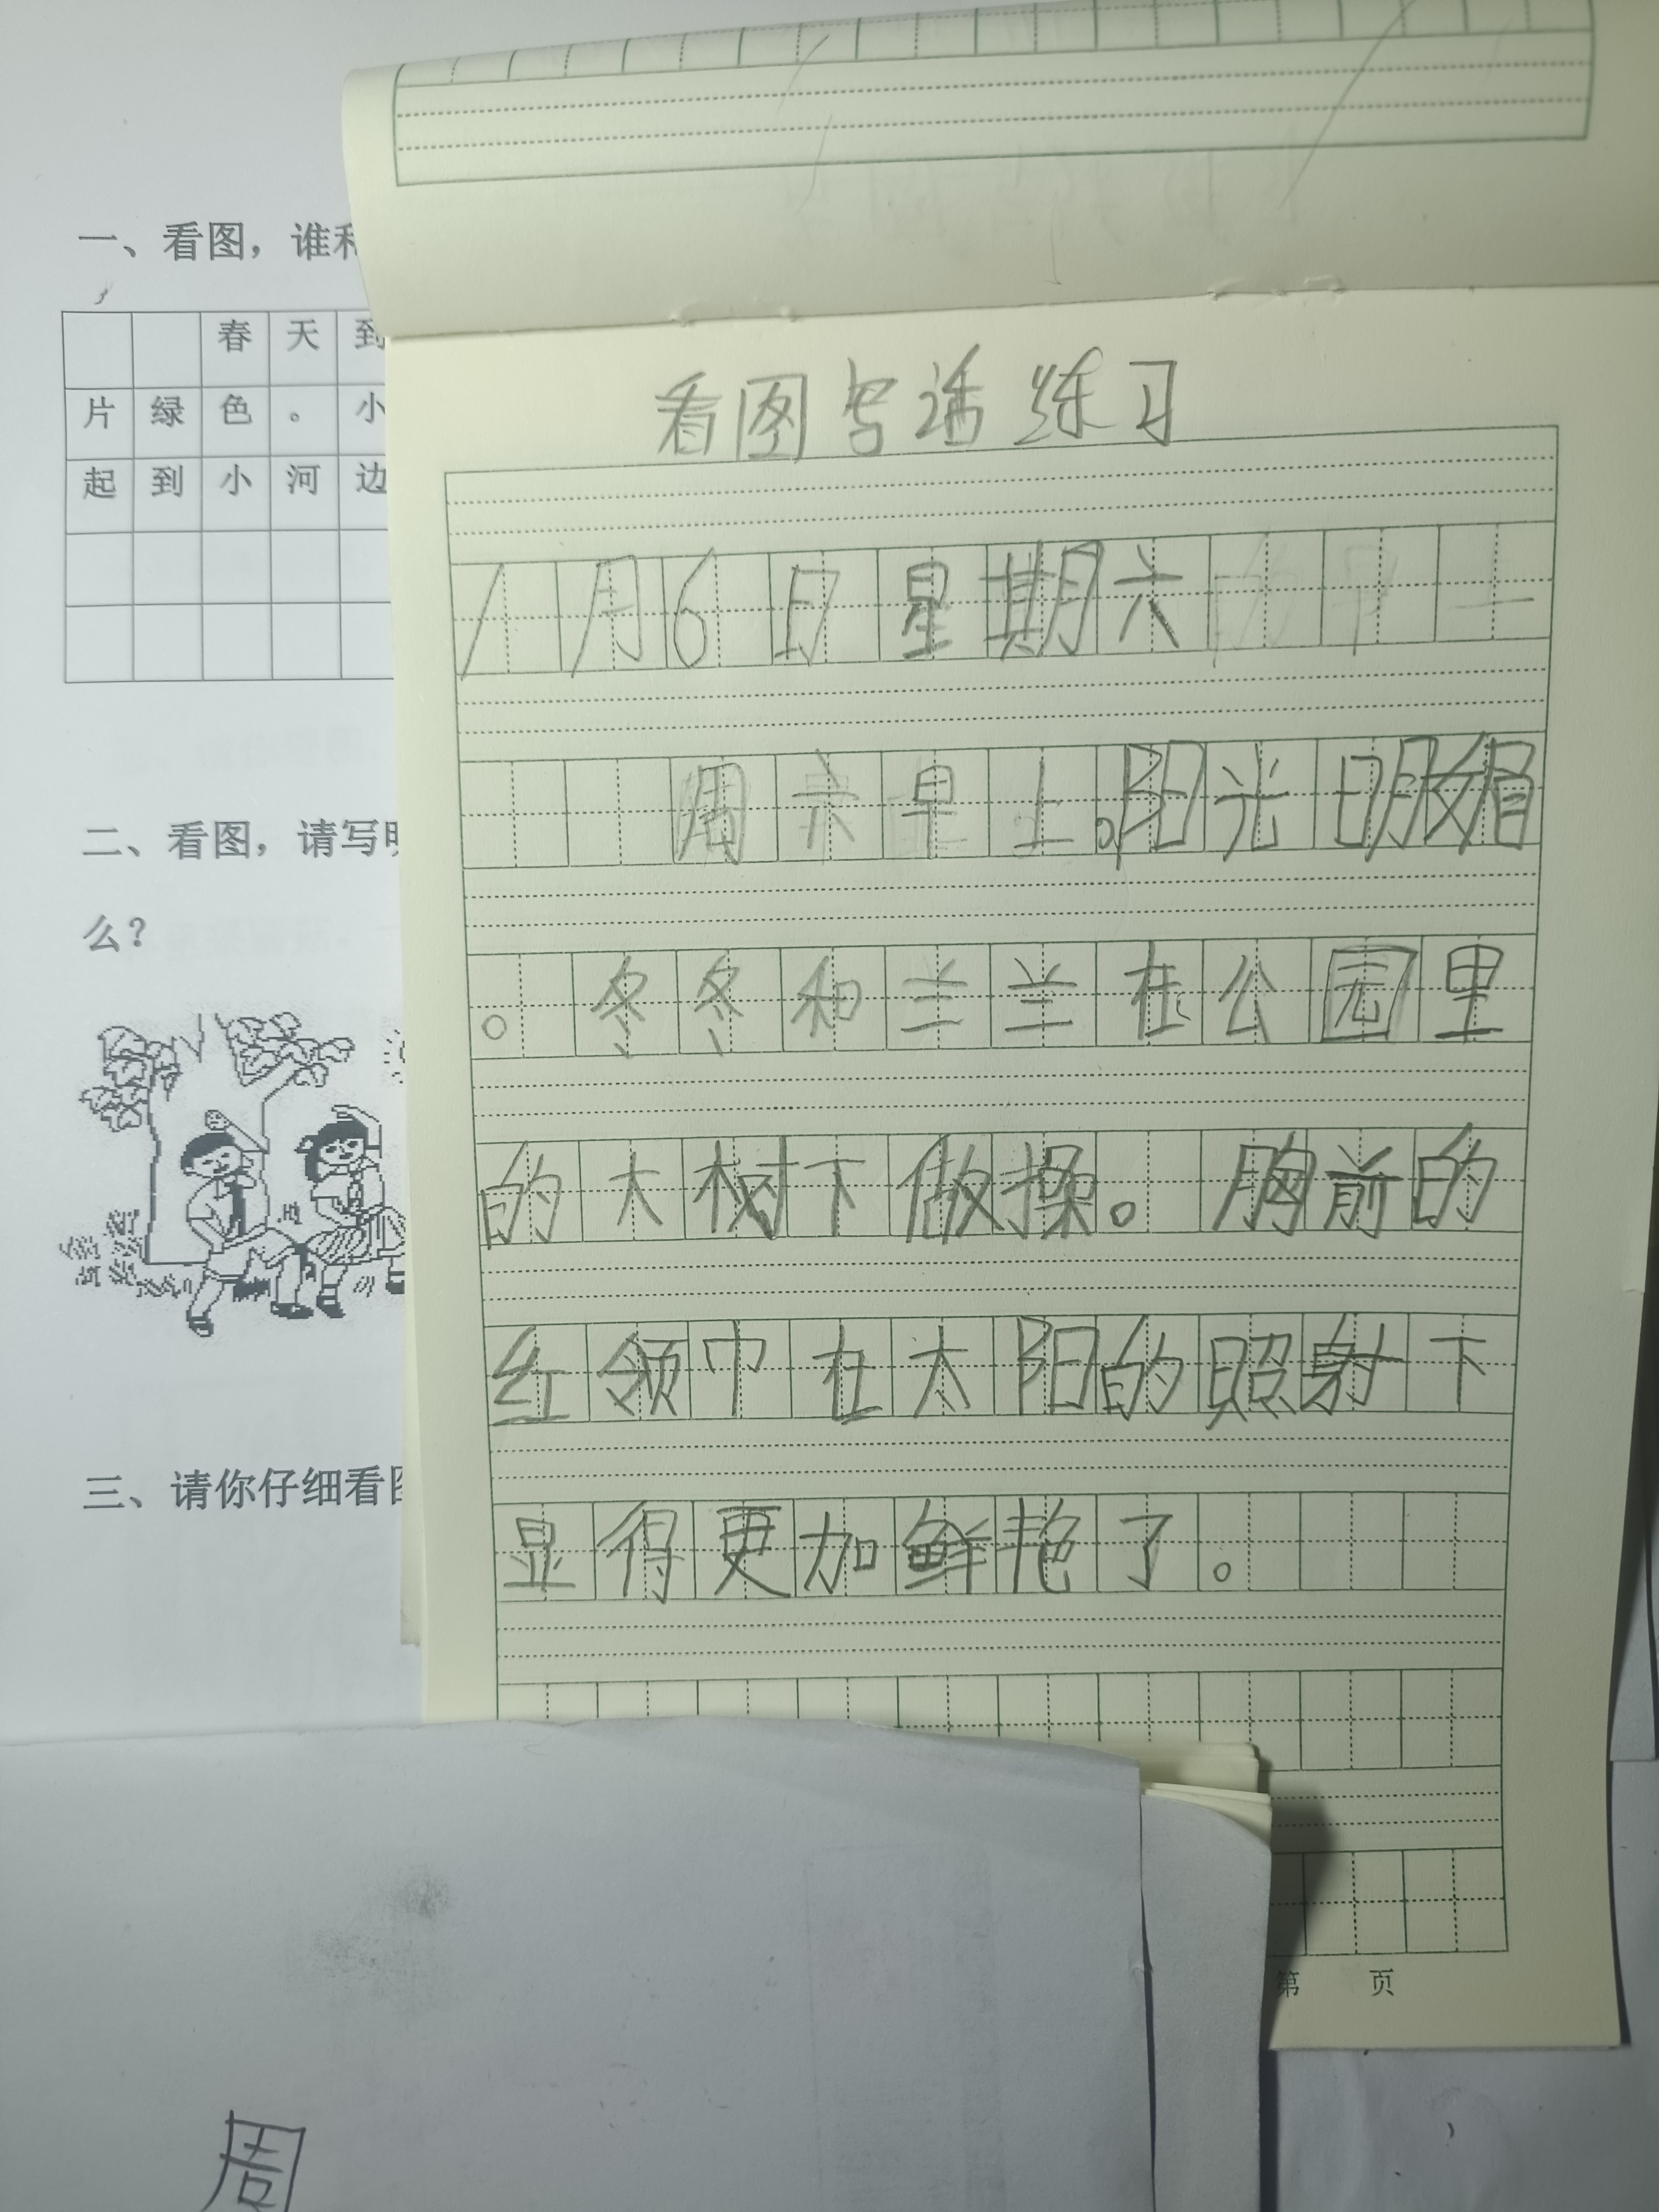 一、看图，谁和
春天到
片绿色。小
起到小河边
二、看图，请写明
么？
三、请你仔细看图
看图写话练习
1月6日星期六
周六早上。阳光明媚
。冬冬和兰兰在公园里
的大树下做操。胸前的
红领巾在太阳的照射下
显得更加鲜艳了。
第 页
周